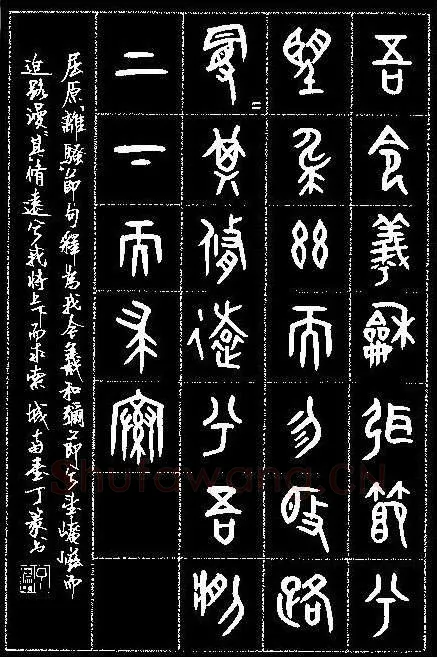 吾令羲龢弭節兮
望弇兹而勿迫路
曼=其脩遠兮吾將
二二而求索
屈原離騷節句釋為我令羲和弭節兮望崦嵫而
迫路漫=其脩遠兮我將上下而求索 城南 丁
Shufawang.CN